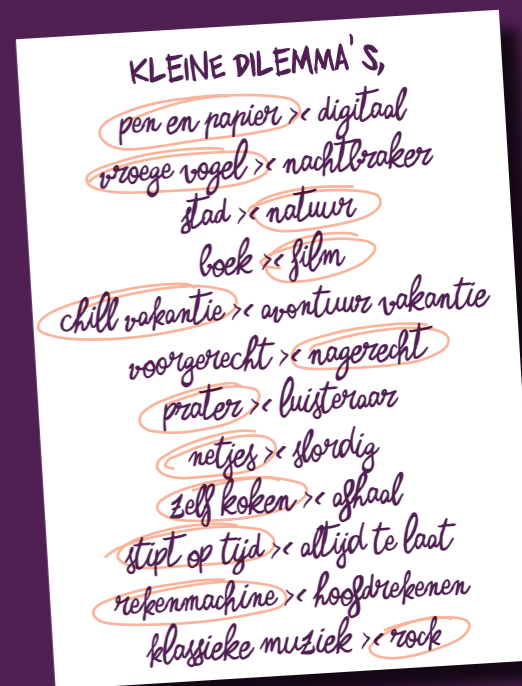 KLEINE DILEMMA'S,
pen en papier >< digitaal
vroege vogel >< nachtbraker
stad >< natuur
boek >< film
chill vakantie >< avontuur vakantie
voorgerecht >< nagerecht
prater >< luisteraar
netjes >< slordig
zelf koken >< afhaal
stipt op tijd >< altijd te laat
rekenmachine >< hoofdrekenen
klassieke muziek >< rock